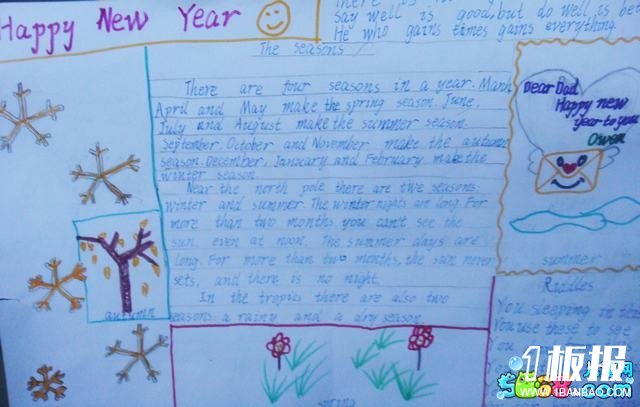 Happy New Year
Say well is good, but do well is bet
He who gains times gains everything.
The seasons
There are four seasons in a year. March
April and May make the spring season. June,
July and August make the summer season.
September. October and November make the autumn
season. December, January and February make the
winter season.
Near the north pole there are two seasons:
winter and summer. The winter nights are long. For
more than two months you can't see the
sun, even at noon. The summer days are
long. For more than two months, the sun never
sets, and there is no night.
In the tropics there are also two
seasons: a rainy and a dry season.
Dear Dad
Happy new
year to you
Owen
summer
autumn
spring
Riddles
You sleeping in the
You use those to see
You
1板报
WWW.1BANBAO.COM